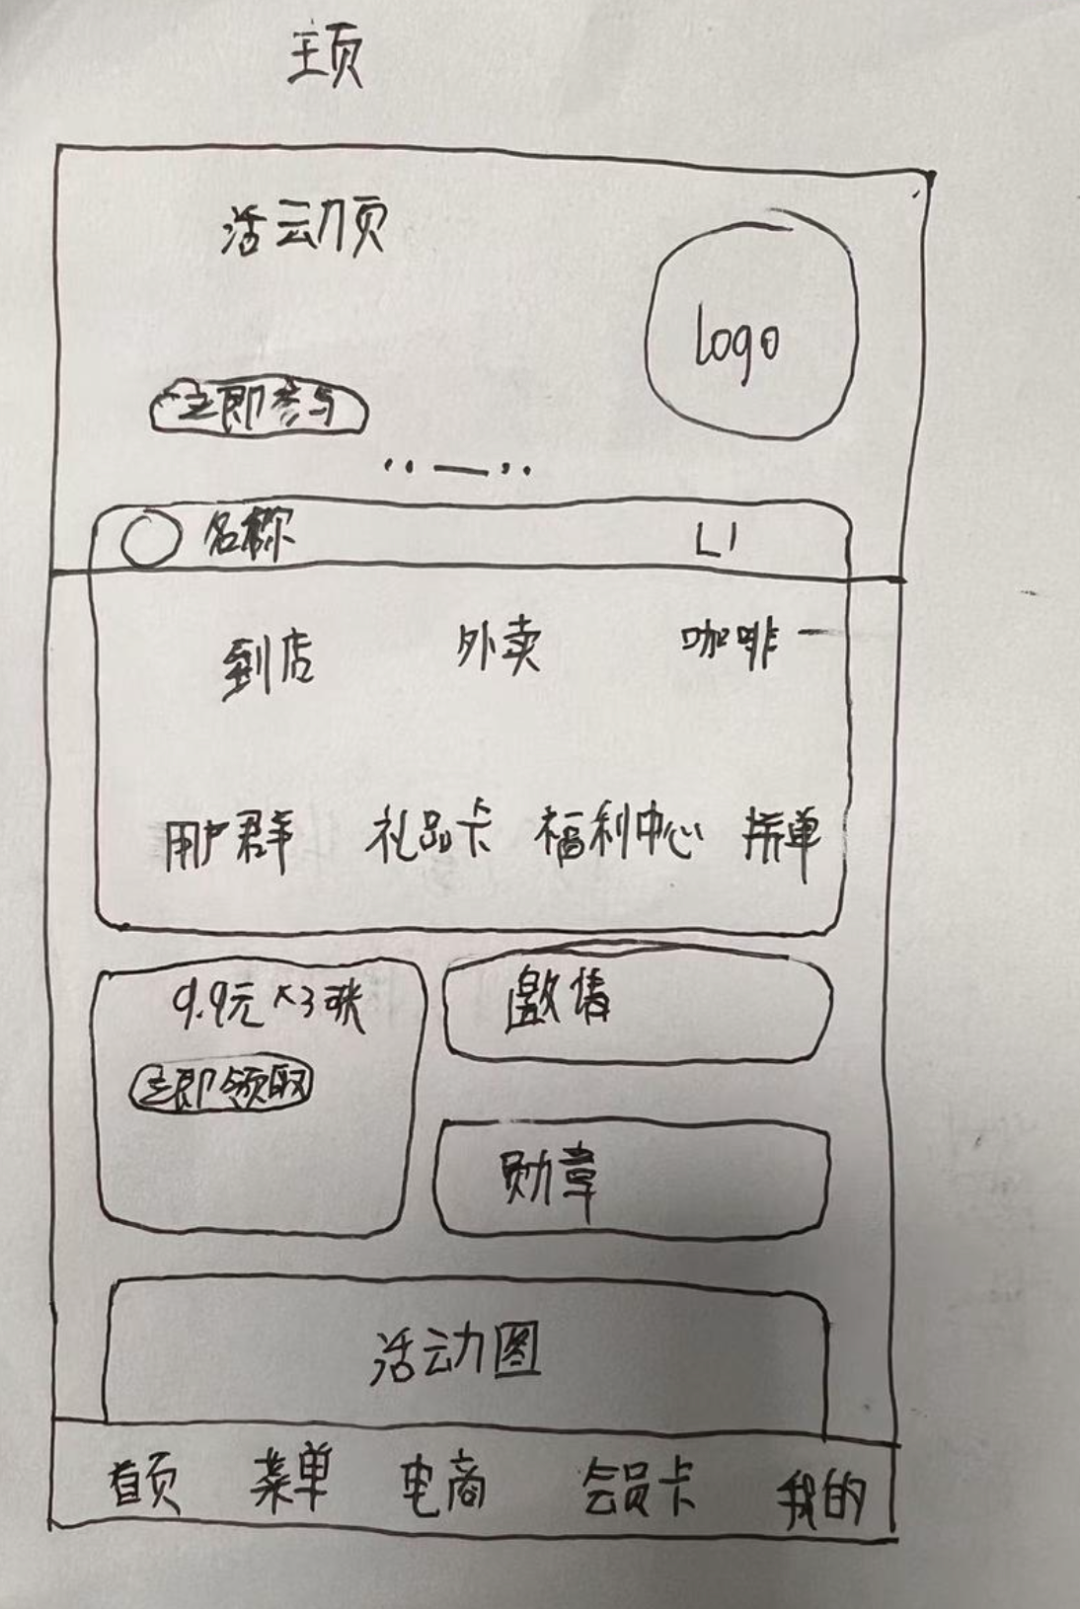 主页
活动页
logo
立即参与
名称 L1
到店 外卖 咖啡
用户群 礼品卡 福利中心 拼单
9.9元×3张
邀请
立即领取
勋章
活动图
首页 菜单 电商 会员卡 我的